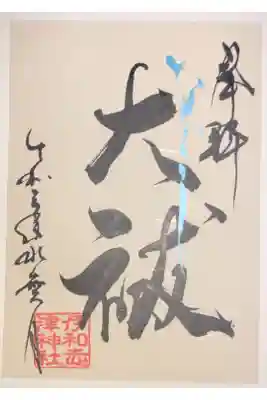 奉拝
大祓
令和 年水無月
伊和志
津神社